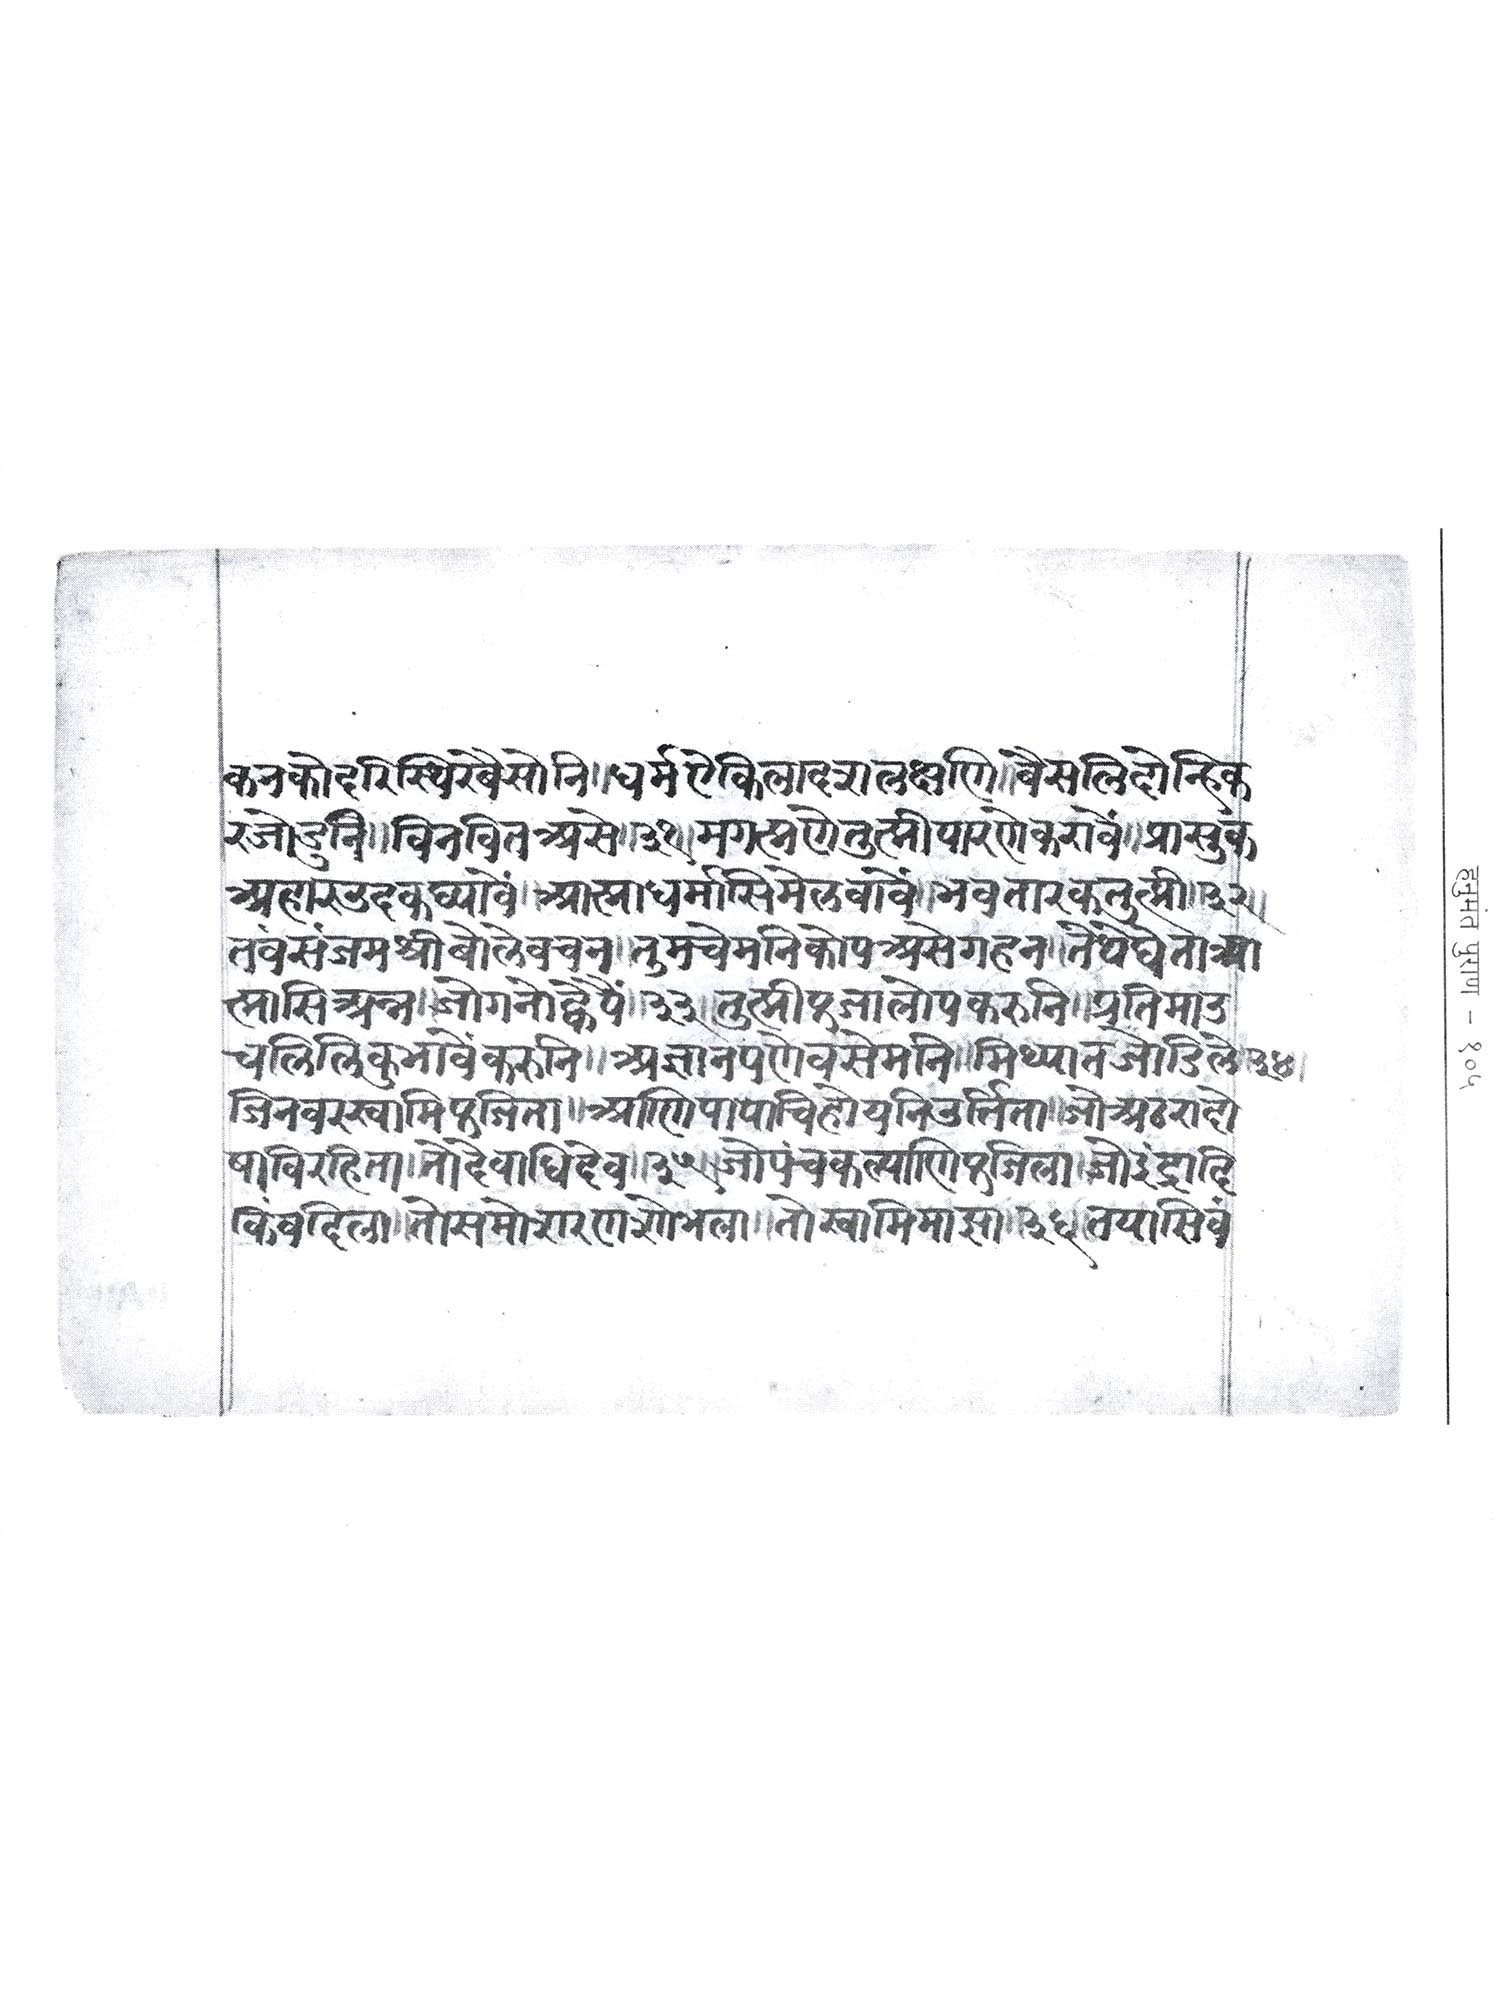 कनकोदरिस्थिरबैसोनि॥धर्मऐकिलादशलक्षणि॥बैसलिदोन्हिक
रजोडुनि॥विनवितअसे॥३१॥मगह्मणेतुह्मीपारणेकरावें॥प्रासुक
अहारउदकघ्यावें॥आह्माधर्मासिमेलवावें॥भवतारकतुह्मी॥३२॥
तवंसंजमश्रीबोलेवचन॥तुमचेमनिकोपअसेगहन॥तेथेंघेताआ
ह्मासिअन्न॥जोगनोव्हेपैं॥३३॥तुह्मीपुजालोपकरुनि॥प्रतिमाउ
चलिलिकुभावेंकरुनि॥अज्ञानपणेवसेमनि॥मिथ्यातजोडिले॥३४॥
जिनवरस्वामिपुजिता॥आणिपापाचिहोयनिउर्तिता॥जोअठरादो
षाविरहिता॥तोदेवाधिदेव॥३५॥जोपंचकल्याणिपुजिला॥जोइंद्रादि
किंवदिला॥तोसमोशरणशोभला॥तोस्वामिमाझा॥३६॥तयासिवं
हनुमंत पुराण - १०५